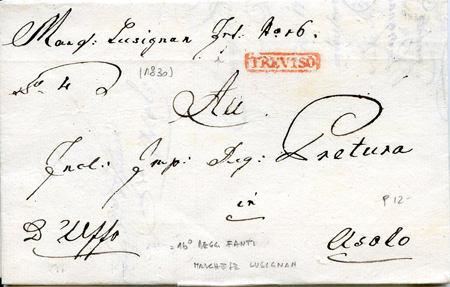 Marq: Lusignan Inf: No 16.
TREVISO
No 4
(1830)
All
Incl: Imp: Reg: Pretura
in
P 12-
D'Uffo
Asolo
= 16° REGG. FANTI
MARCHESE LUSIGNAN